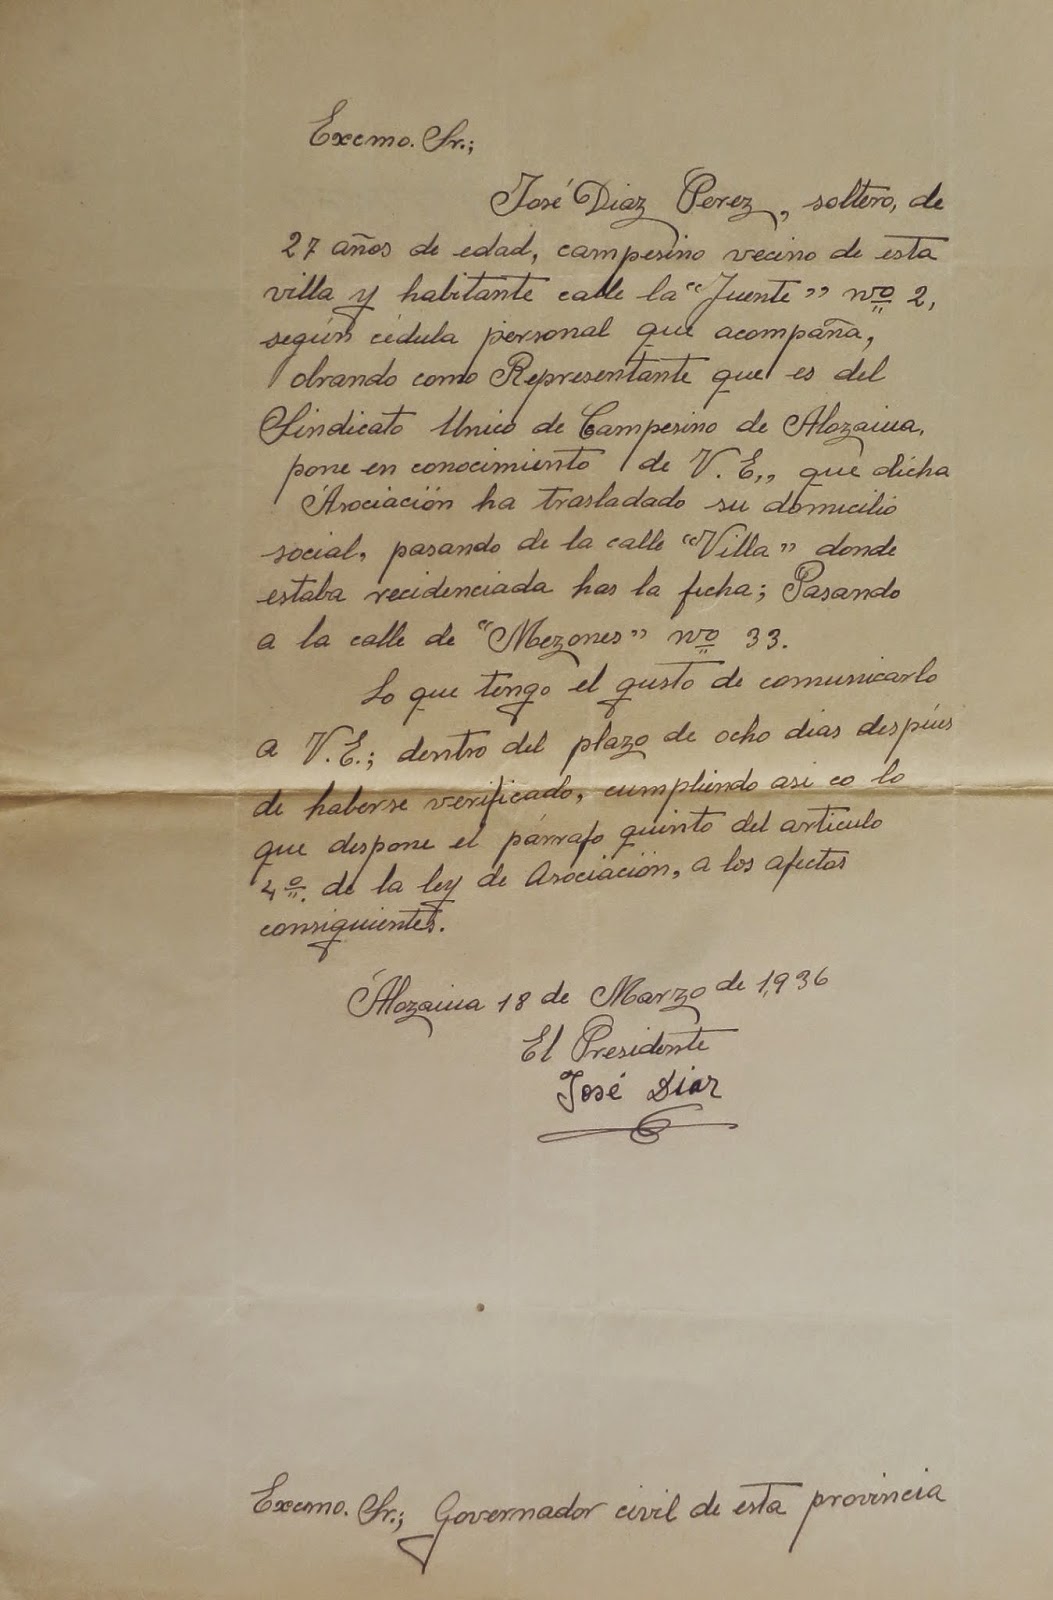 Excmo. Sr.;
José Diaz Perez, soltero, de
27 años de edad, campesino vecino de esta
villa y habitante calle la "Fuente" nº 2,
según cédula personal que acompaña,
obrando como Representante que es del
Sindicato Unico de Campesino de Alozaina,
pone en conocimiento de V. E,, que dicha
Asociación ha trasladado su domicilio
social, pasando de la calle "Villa" donde
estaba recidenciada has la fecha; Pasando
a la calle de "Mezones" nº 33.
Lo que tengo el gusto de comunicarlo
a V.E.; dentro del plazo de ocho dias despúes
de haberse verificado, cumpliendo asi co lo
que dispone el párrafo quinto del articulo
4º. de la ley de Asociación, a los afectos
consiguientes.
Álozaina 18 de Marzo de 1,936
El Presidente
José Diaz
Excmo. Sr.; Governador civil de esta provincia